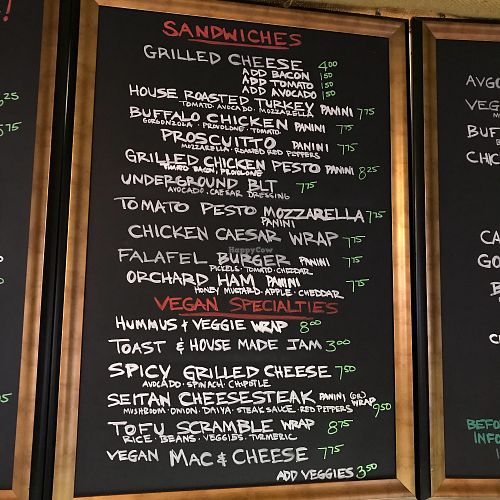 SANDWICHES
GRILLED CHEESE 4.00
ADD BACON 1.50
ADD TOMATO 1.50
ADD AVOCADO 1.50
HOUSE ROASTED TURKEY PANINI 7.75
TOMATO · AVOCADO · MOZZARELLA
BUFFALO CHICKEN PANINI 7.75
GORGONZOLA · PROVOLONE · TOMATO
PROSCUITTO PANINI 7.75
MOZZARELLA · ROASTED RED PEPPERS
GRILLED CHICKEN PESTO PANINI 8.25
TOMATO, BACON, PROVOLONE
UNDERGROUND BLT 7.75
AVOCADO, CAESAR DRESSING
TOMATO PESTO MOZZARELLA 7.75
PANINI
CHICKEN CAESAR WRAP 7.75
FALAFEL BURGER PANINI 7.75
PICKELS · TOMATO · CHEDDAR
ORCHARD HAM PANINI 7.75
HONEY MUSTARD · APPLE · CHEDDAR
VEGAN SPECIALTIES
HUMMUS + VEGGIE WRAP 8.00
TOAST & HOUSE MADE JAM 3.00
SPICY GRILLED CHEESE 7.50
AVOCADO · SPINACH · CHIPOTLE
SEITAN CHEESESTEAK PANINI (OR) WRAP 9.50
MUSHROOM · ONION · DAIYA · STEAK SAUCE · RED PEPPERS
TOFU SCRAMBLE WRAP 8.75
RICE · BEANS · VEGGIES · TURMERIC
VEGAN MAC & CHEESE 7.75
ADD VEGGIES 3.50
HappyCow